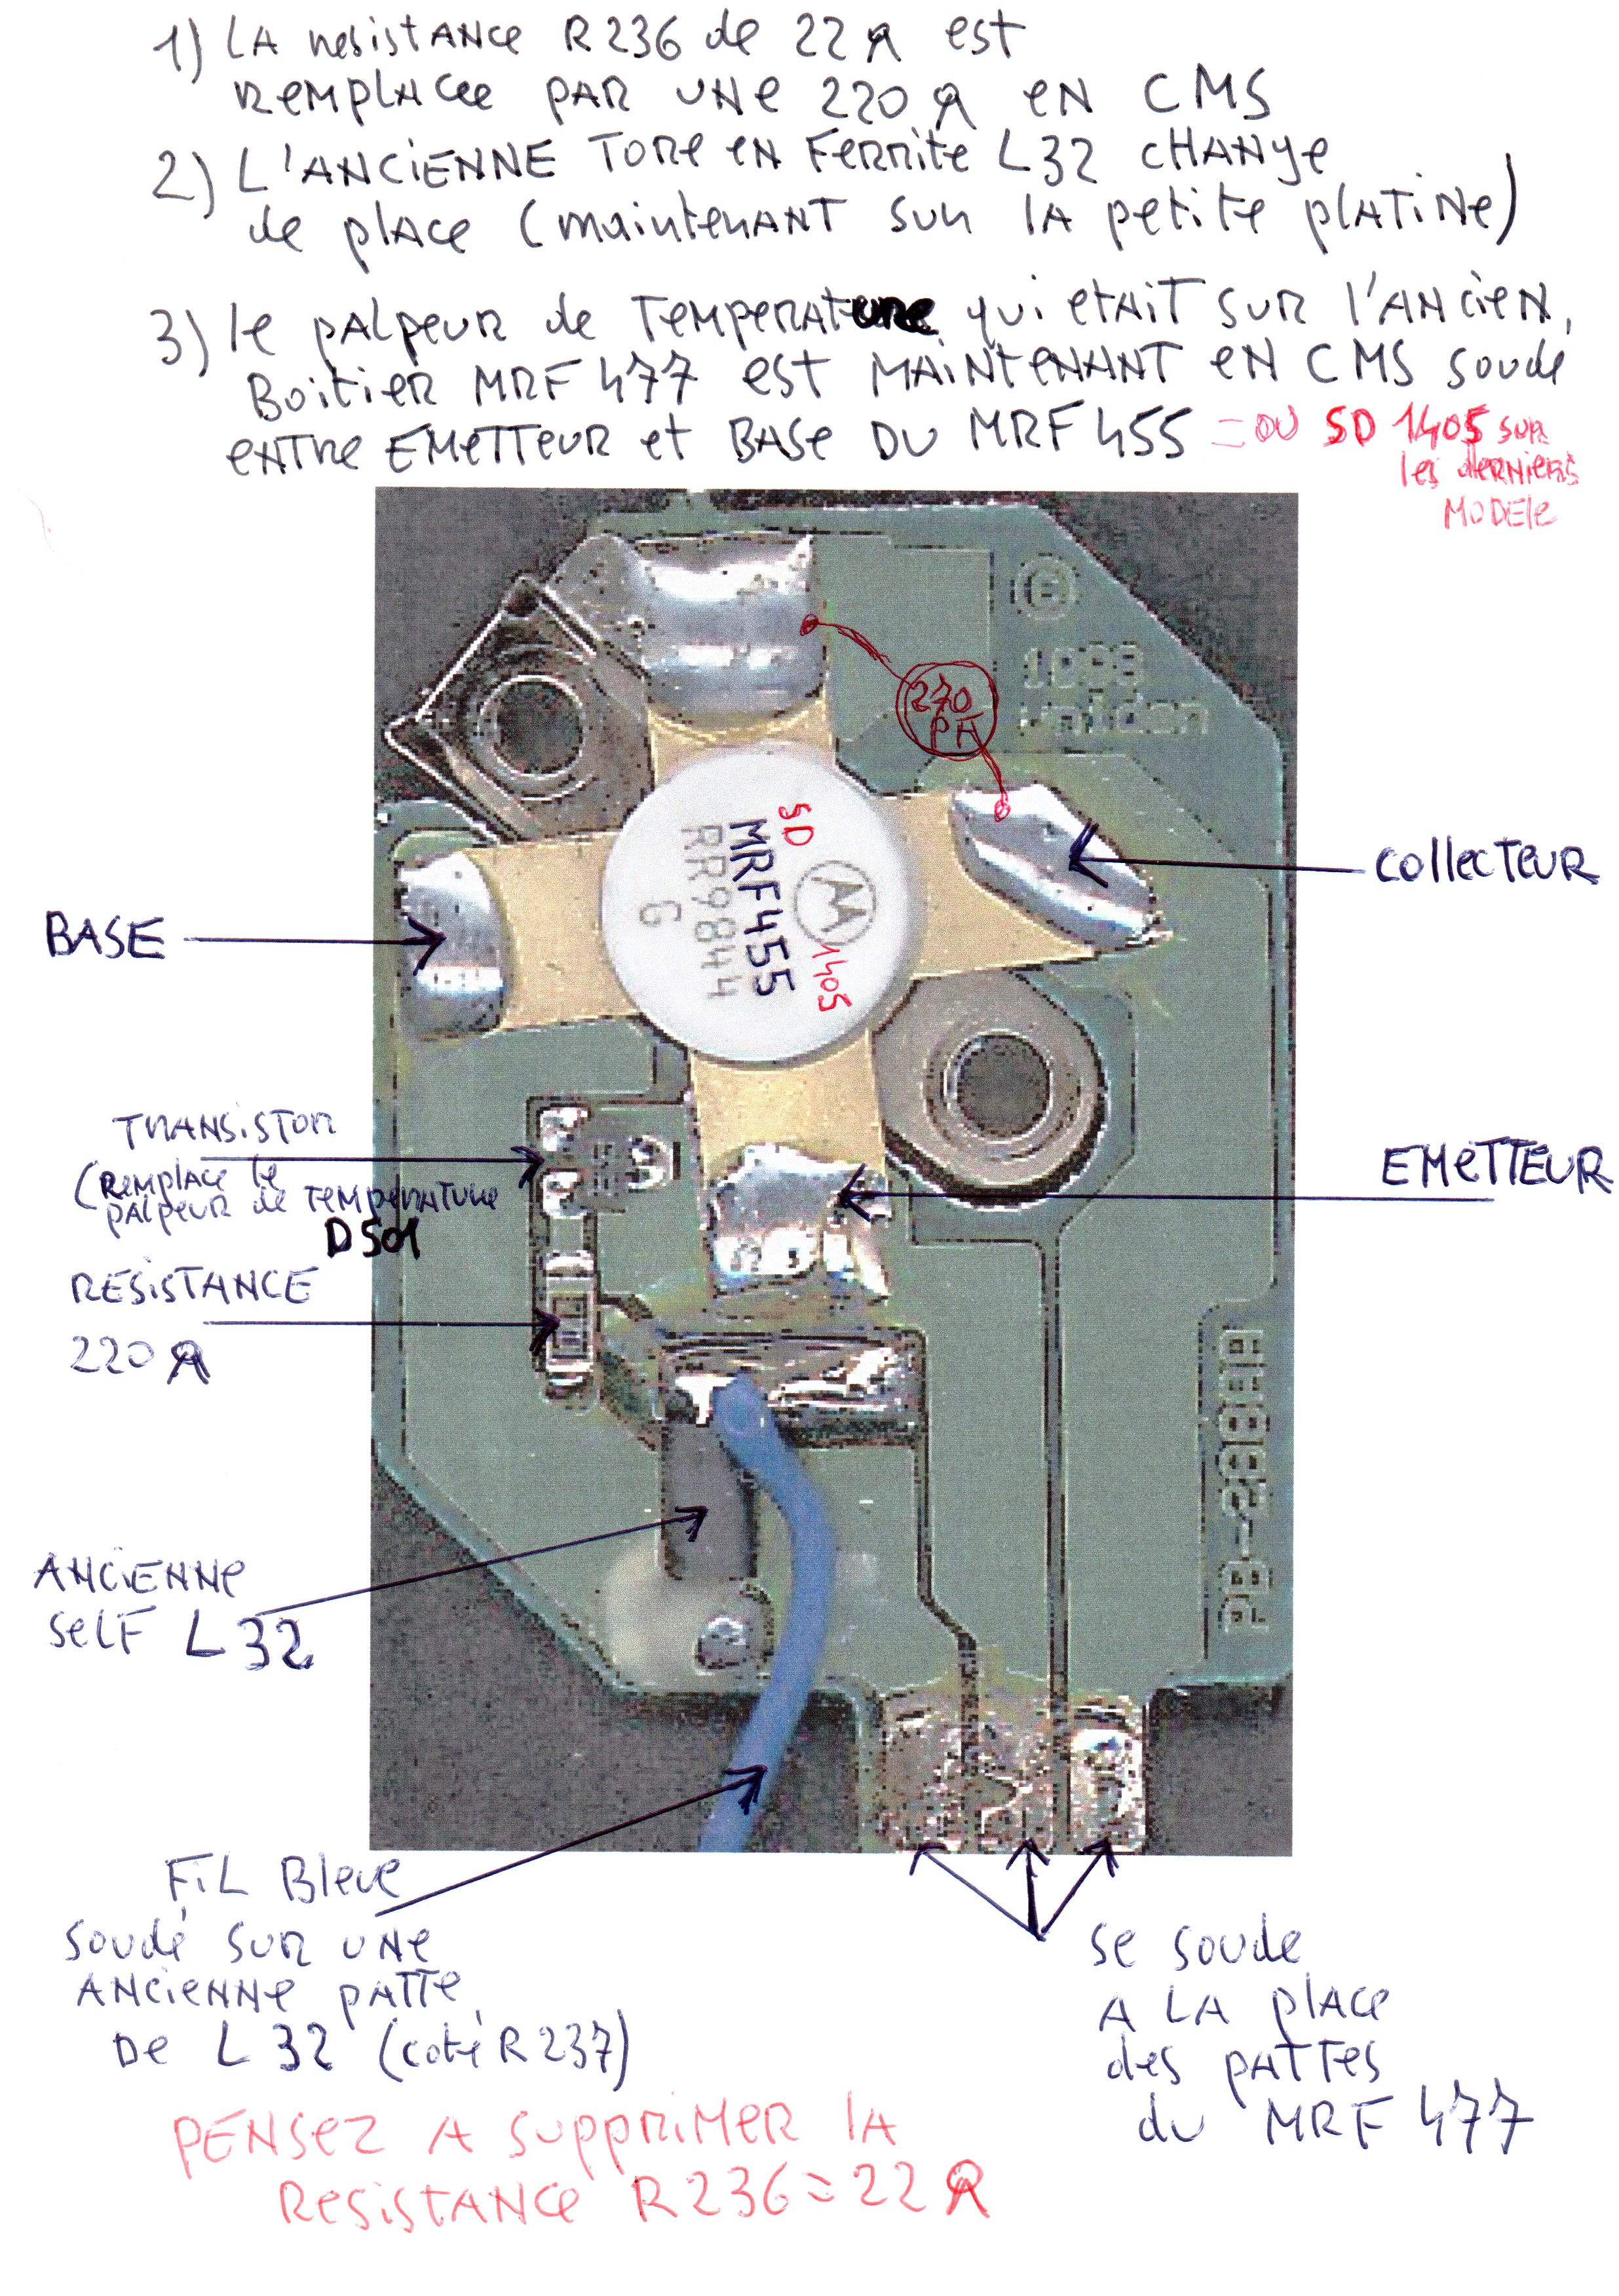 1) LA resistance R236 de 22 Ω est
remplacee PAR UNe 220 Ω eN CMS
2) L'ANCiENNE TORe eN Ferrite L32 cHANge
de place (maintenANT sur lA petite plATiNe)
3) le pAlpeur de TemperATure qui etaiT SUR l'ANcieN
BoitieR MRF 477 est MAiNteNANT eN CMS soude
eNTre EMeTTeuR et BASe DU MRF 455 = OU SD 1405 sur
les derNiers
MODEle
270
PF
1998
uniden
SD
MRF455
RR9844
G
1405
COllecTeuR
BASE
TRANSiSTOR
(Remplace le
pAlpeur de TempeRATURe
D501
EMeTTEUR
RESiSTANCE
220 Ω
PB-288HA
ANCiENNe
SelF L 32
FiL Bleue
soudé SUR UNe
ANcieNNe pATTe
De L 32 (coté R237)
se soude
A LA place
des pATTes
du MRF 477
PENSeZ A suppriMeR lA
ResisTANCe R236=22 Ω